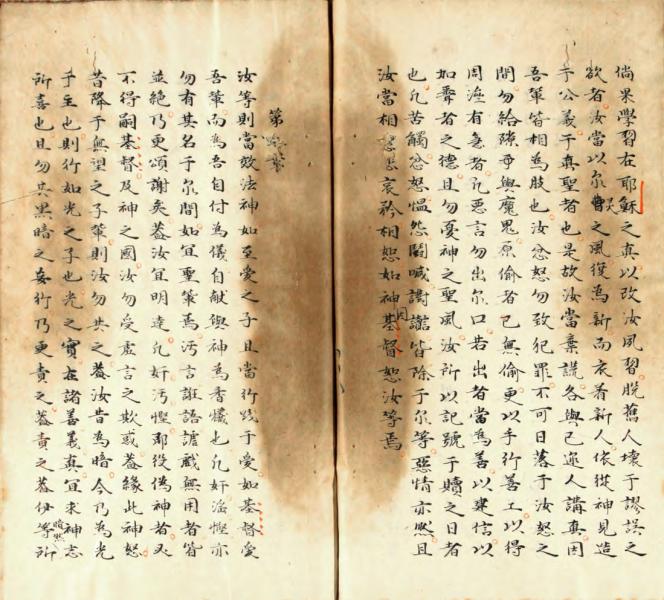 倘果學習在耶穌之真以改汝夙習脫舊人壞于謬誤之
欲者汝當以尔灵之風復為新而衣着新人依從神見造
于公義于真聖者也是故汝當棄謊各與己邇人講真因
吾輩皆相為肢也汝忿怒勿致犯罪不可日落于汝怒之
間勿給隙與魔鬼原偷者已無偷更以手行善工以得
周濟有急者凡惡言勿出尔口若出者當為善以建信以
如聽者之德且勿憂神之聖風汝所以記號于贖之日者
也凡苦觸忿怒慍怨鬧喊謗讟皆除于尔等惡情亦然且
汝當相慈哀矜相恕如神因基督恕汝等焉
第章
汝等則當效法神如至愛之子且當行踐于愛如基督愛
吾輩而為吾自付為儀自献與神為香犧也凡奸淫慳亦
勿有其名于尔間如宜聖輩焉污言誑語謔戲無用者皆
並絶乃更頌謝矣葢汝宜明達凡奸污慳即役偽神者
不得嗣基督及神之國汝勿受虛言之欺或葢緣此神怒
昔降于無望之子輩則汝勿共之葢汝昔為暗今乃為光
于主也則行如光之子也光之實在諸善義真宜求神志
所喜也且勿共黑暗之妄行乃更責之葢責之葢伊等暗然所